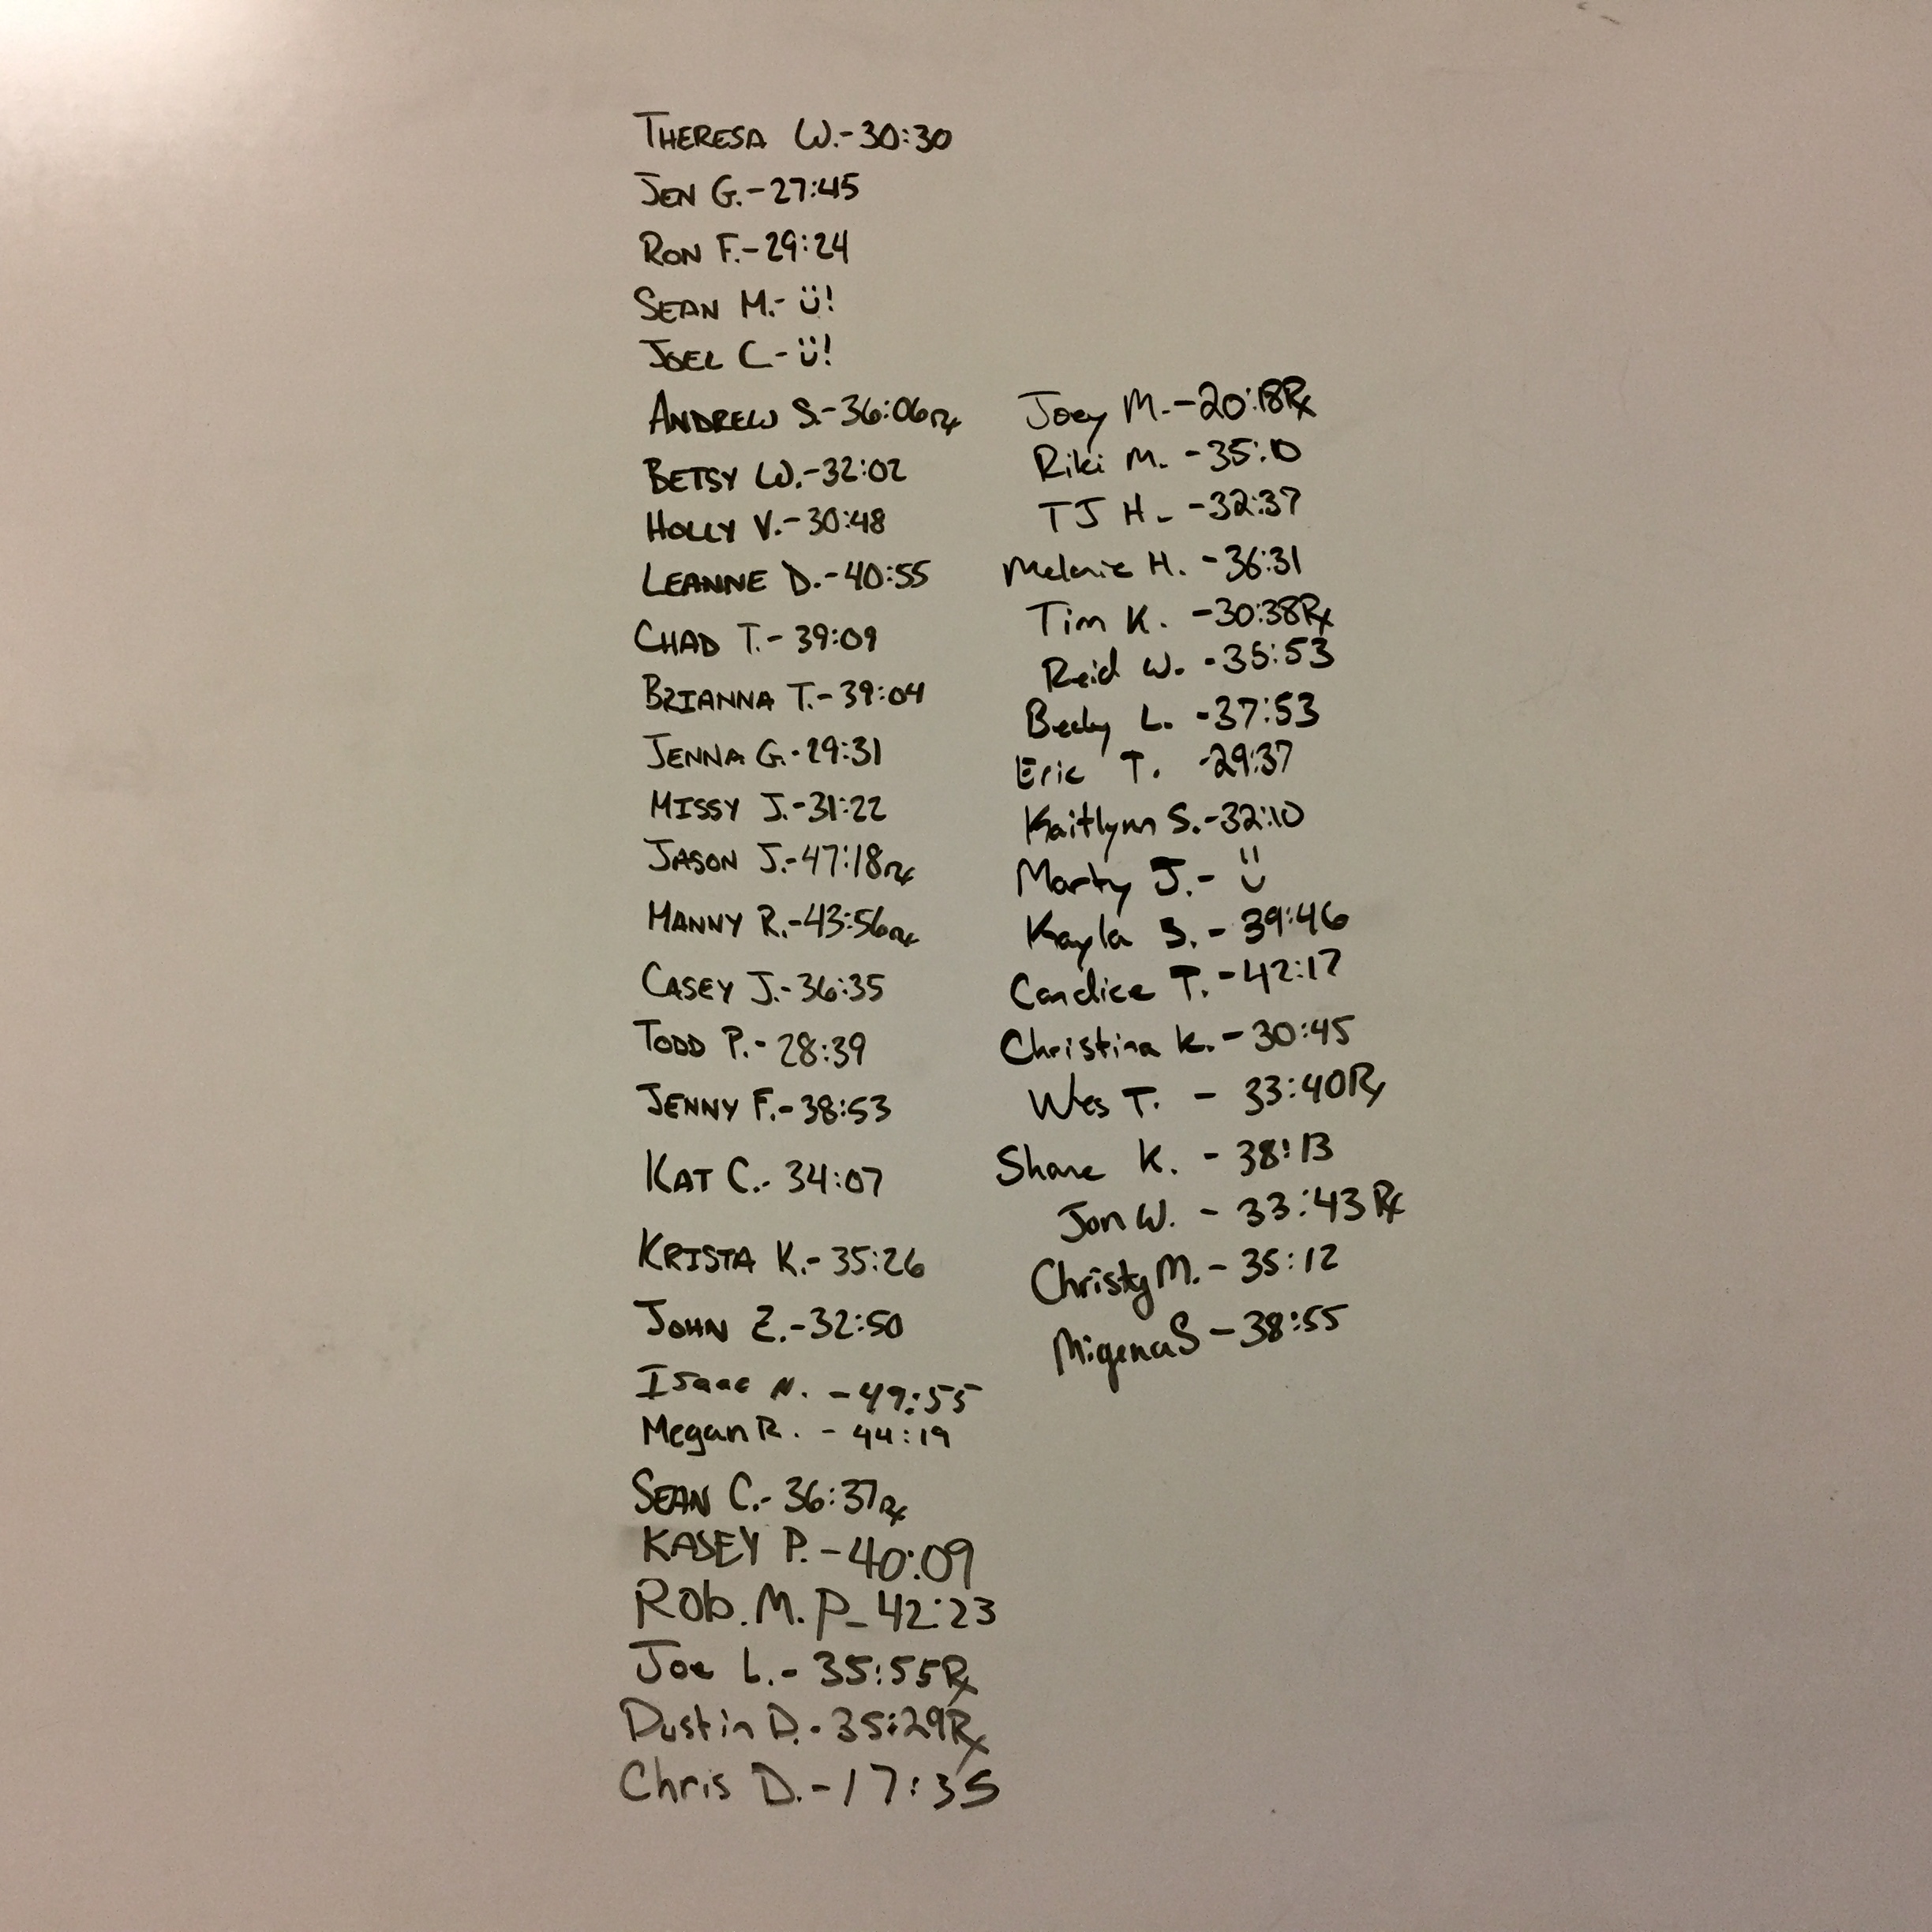 THERESA W.-30:30
JEN G.-27:45
RON F.-29:24
SEAN M.- Ü!
JOEL C-Ü!
ANDREW S.-36:06Rx
BETSY W.-32:02
HOLLY V.-30:48
LEANNE D.-40:55
CHAD T.-39:09
BRIANNA T.-39:04
JENNA G.-29:31
MISSY J.-31:22
JASON J.-47:18Rx
MANNY R.-43:56Rx
CASEY J.-36:35
TODD P.-28:39
JENNY F.-38:53
KAT C.-34:07
KRISTA K.-35:26
JOHN Z.-32:50
Isaac N. -49:55
Megan R. - 44:19
SEAN C.-36:37Rx
KASEY P.-40:09
Rob.M.P-42:23
Joe L.-35:55Rx
Dustin D.-35:29Rx
Chris D.-17:35
Joey M.-20:18Rx
Riki M. -35:10
TJ H. -32:37
Melanie H. -36:31
Tim K. -30:38Rx
Reid W. -35:53
Becky L. -37:53
Eric T. -29:37
Kaitlynn S.-32:10
Marty J.- Ü
Kayla S.-39:46
Candice T.-42:17
Christina K.-30:45
Wes T. - 33:40Rx
Shane K. - 38:13
Jon W. - 33:43Rx
Christy M.-35:12
Migena S-38:55